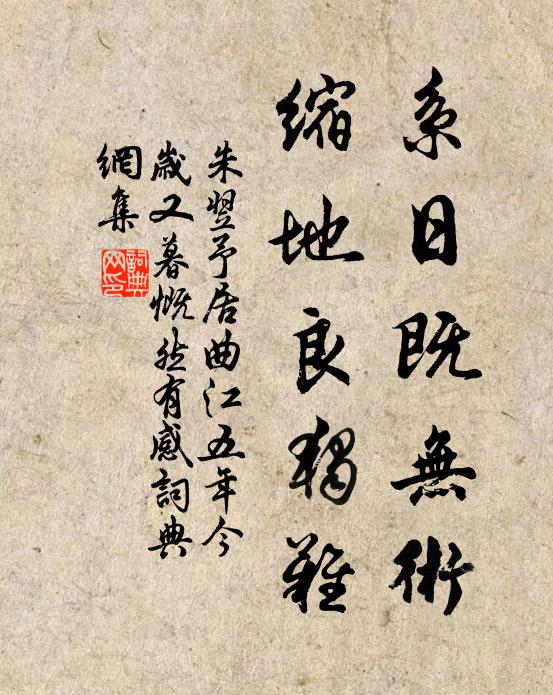 系日既無術
縮地良獨難
朱翌予居曲江五年今
歲又暮慨然有感詞典
網集
詞典
网印